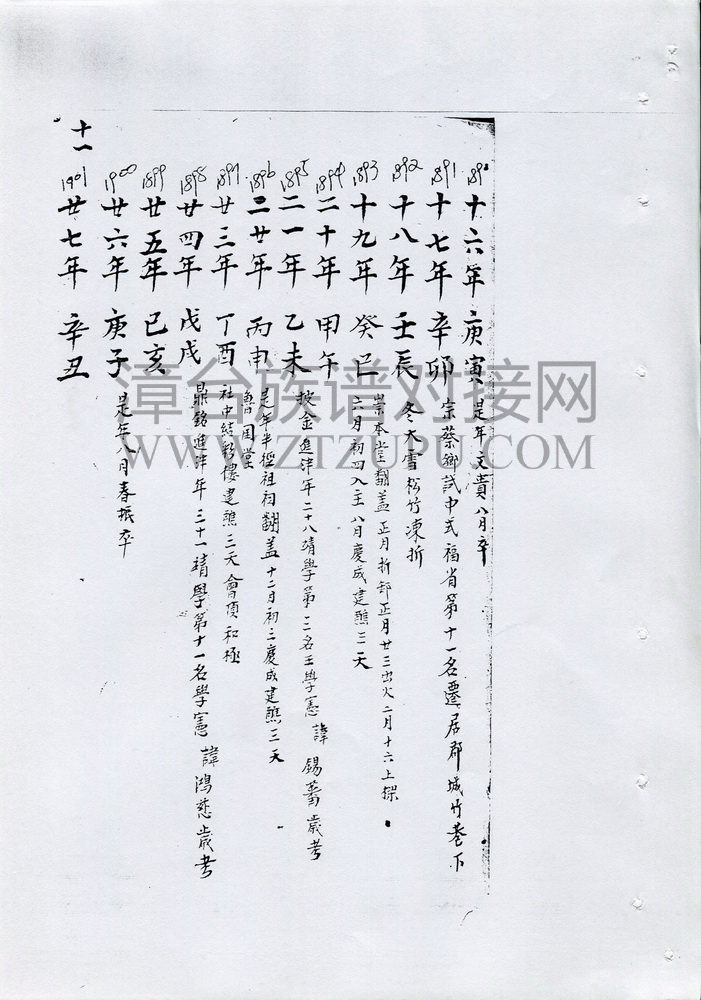 1890
十六年 庚寅 是年文貴八月卒
1891
十七年 辛卯 宗蔡鄉試中式福省第十一名遷居郡城竹巷下
1892
十八年 壬辰 冬大雪松竹凍折
1893
十九年 癸巳 崇本堂翻蓋正月折卸正月廿三出火二月十六上樑
六月初四入主八月慶成建醮三天
1894
二十年 甲午
1895
二一年 乙未 披金進泮年二十八靖學第三名王學憲 諱 錫蕃歲考
1896
二廿年 丙申 是年半徑祖祠翻蓋十二月初三慶成建醮三天
魯国堂
1897
廿三年 丁酉 社中結彩樓建醮三天會頂和極
1898
廿四年 戊戌 鼎銘進泮年三十一靖學第十一名學憲 諱鴻慈歲考
1899
廿五年 己亥
1900
廿六年 庚子 是年八月春振卒
1901
廿七年 辛丑
十一
漳台族谱对接网
WWW.ZTZUPU.COM